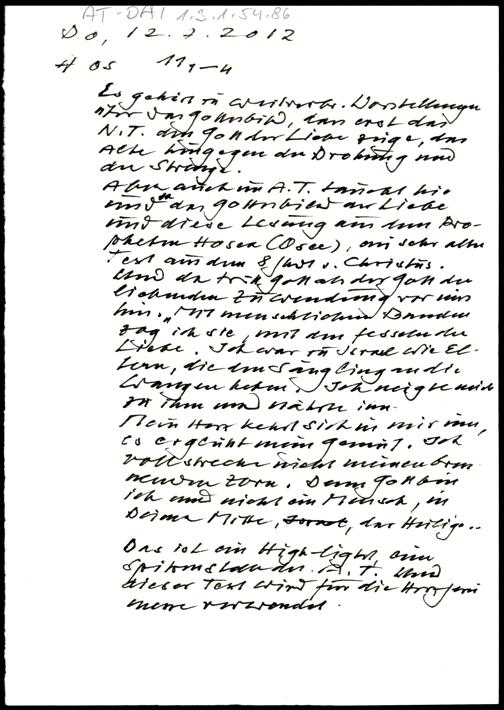 AT-DAI 1.3.1.54.86
Do, 12.7.2012
Hos 11,1-4
Es gehört zu weitverbr. Vorstellungen
über das Gottesbild, dass erst das
N.T. den Gott der Liebe zeige, das
Alte hingegen der Drohung und
der Strenge.
Aber auch im A.T. taucht hie
und da das Gottesbild der Liebe
und diese Lesung aus dem Pro-
pheten Hosea (Osee), ein sehr alter
Text aus dem 8 Jhdt v. Christus.
Und da tritt Gott als der Gott der
liebenden Zuwendung vor uns
hin. „Mit menschlichen Banden
zog ich sie, mit den Fesseln der
Liebe. Ich war zu Israel wie El-
tern, die den Säugling an die
Wangen heben. Ich neigte mich
zu ihm und nährte ihn.
Mein Herz kehrt sich in mir um,
es erglüht mein Gemüt. Ich
vollstrecke nicht meinen bren
nenden Zorn. Denn Gott bin
ich und nicht ein Mensch, in
Deiner Mitte, Israel, der Heilige..
Das ist ein High-light, eine
Spitzenstelle des A.T. Und
dieser Text wird für die Herz Jesu
messe verwendet.